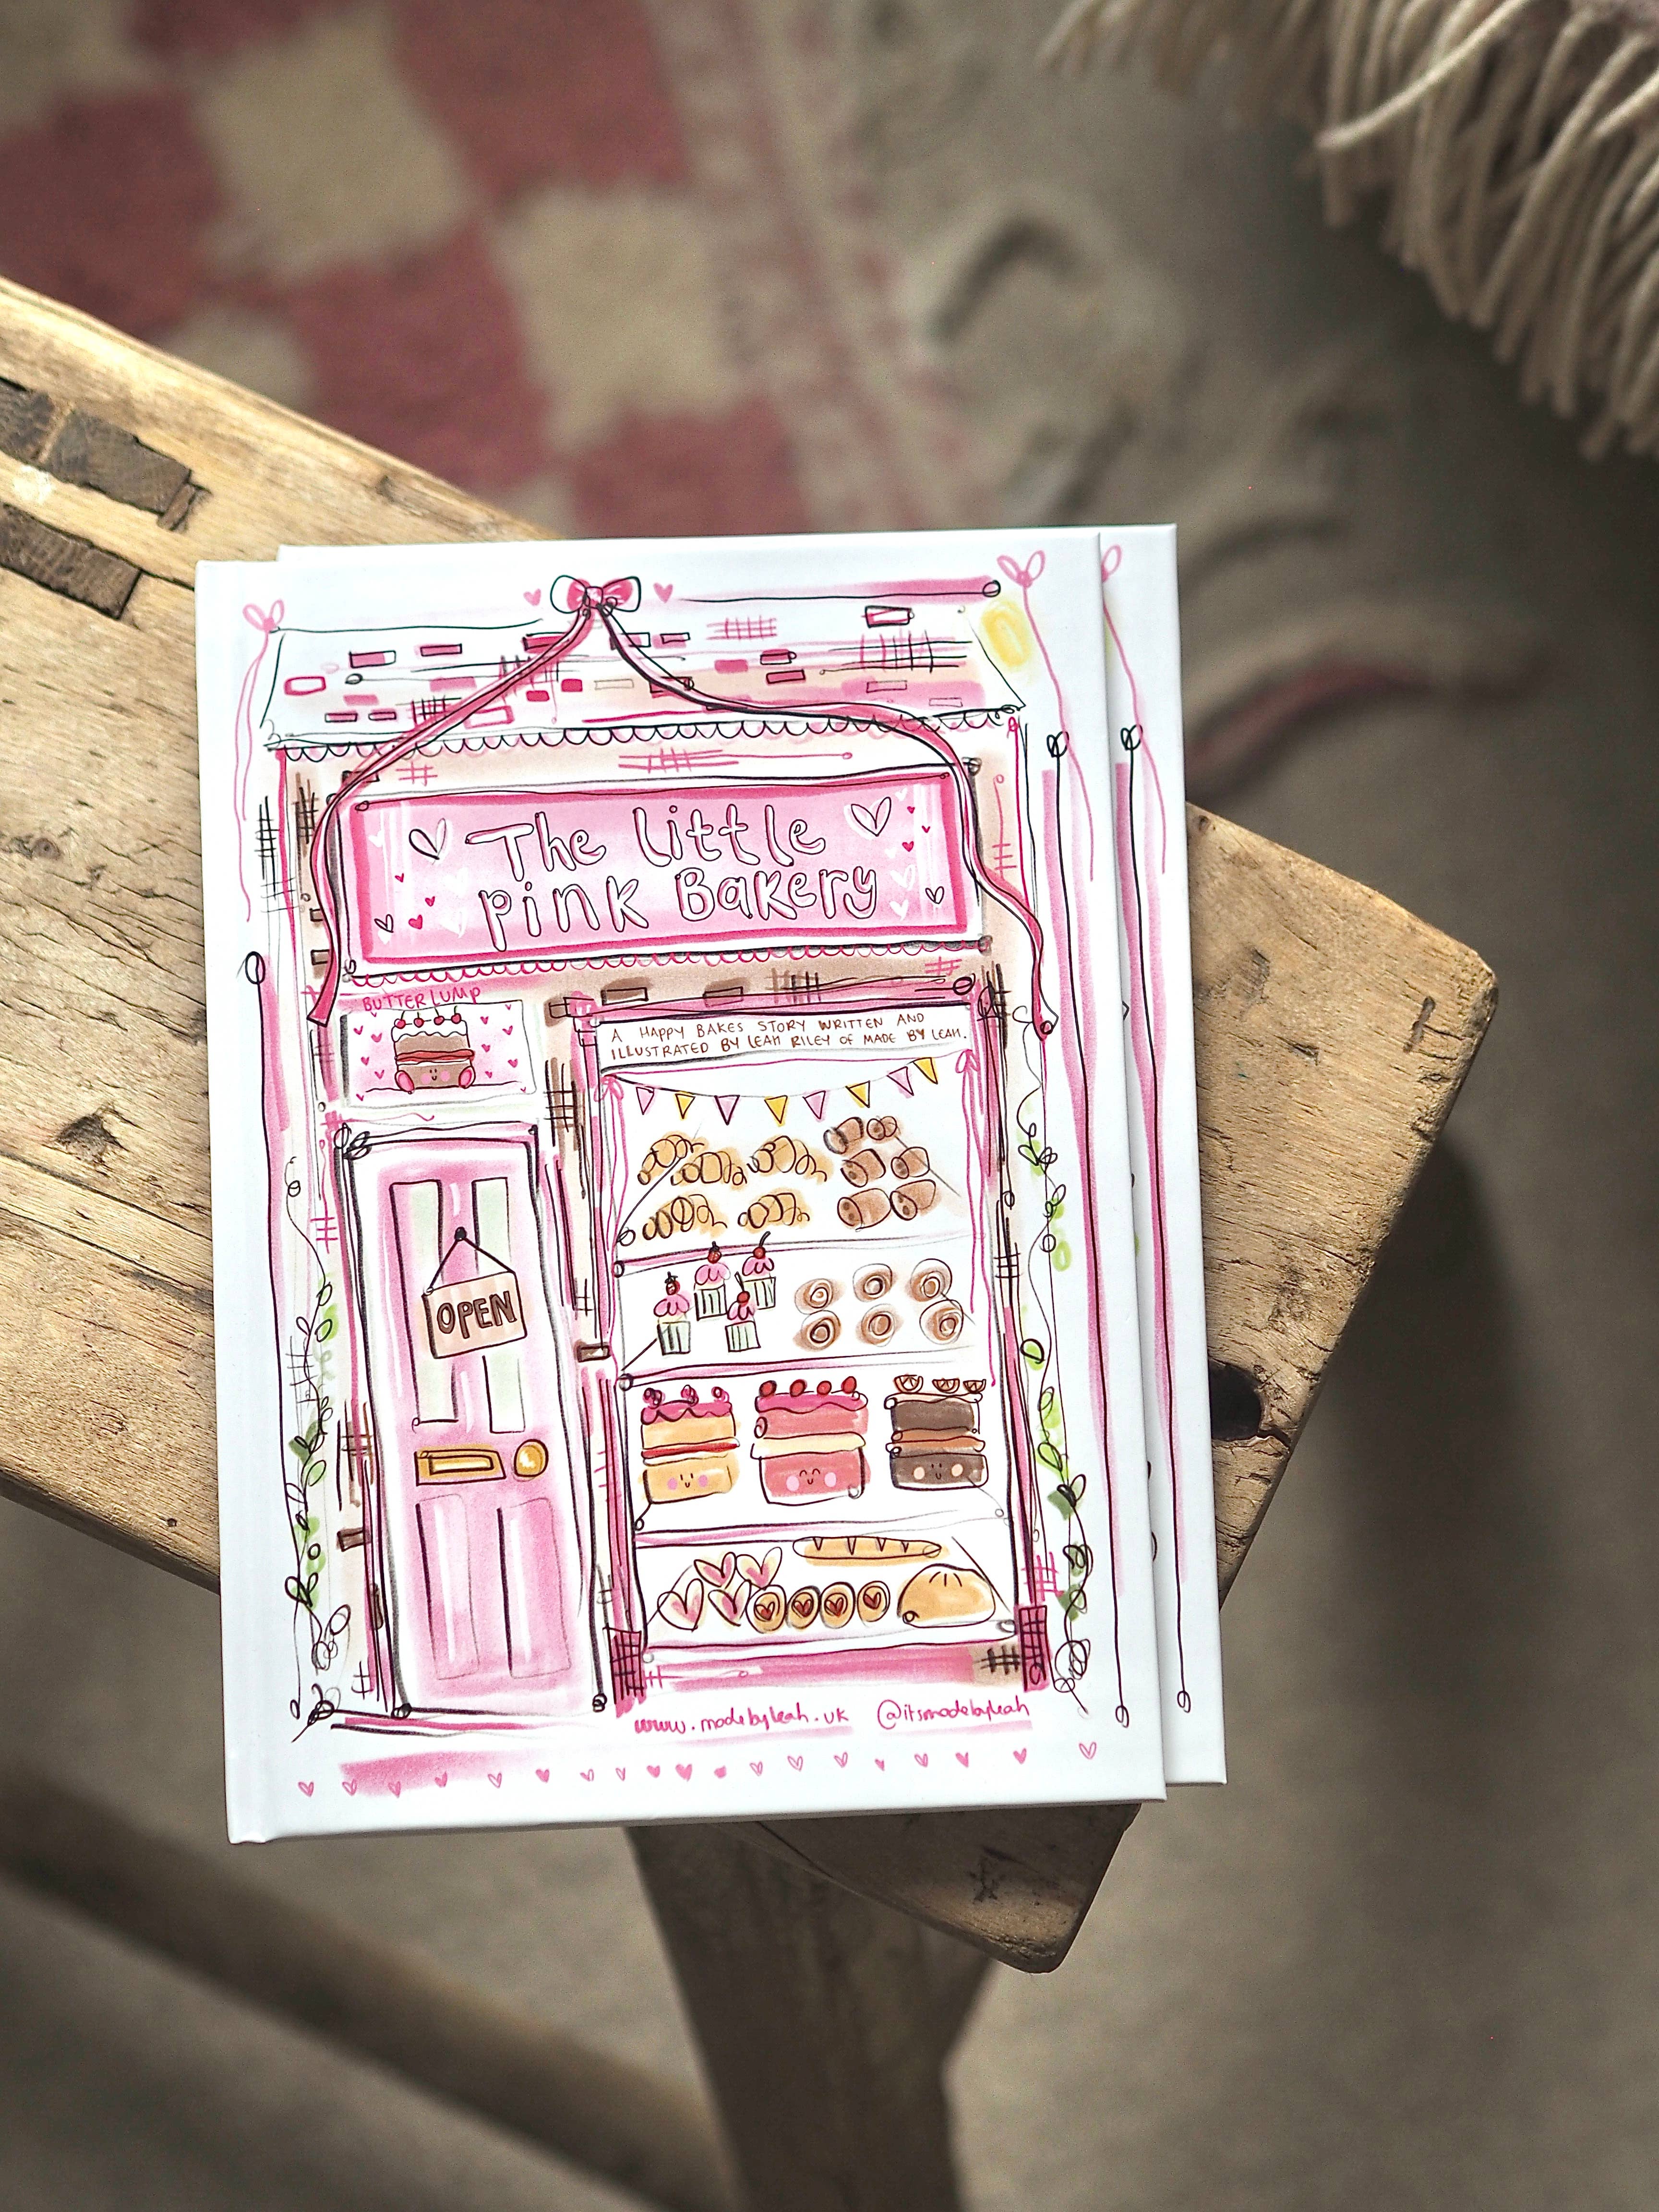 The little
pink Bakery
BUTTER LUMP
A HAPPY BAKES STORY WRITTEN AND
ILLUSTRATED BY LEAH RILEY OF MADE BY LEAH.
OPEN
www.madebyleah.uk @itsmadebyleah